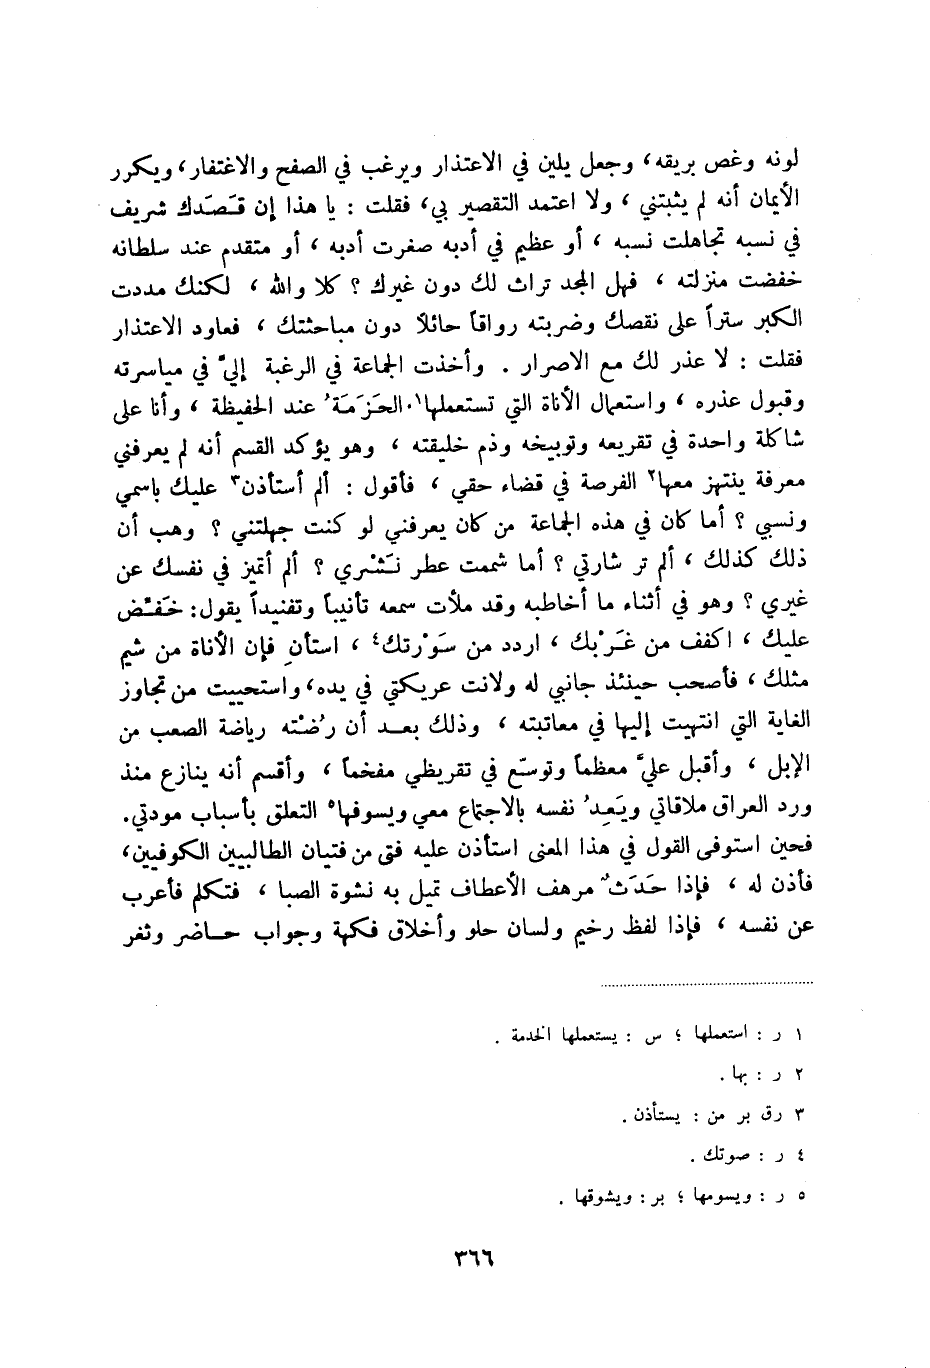 لونه وغص بريقه، وجعل يلين في الاعتذار ويرغب في الصفح والاغتفار، ويكرر
الأيمان أنه لم يثبتني، ولا اعتمد التقصير بي، فقلت : يا هذا إن قَصَدك شريف
في نسبه تجاهلت نسبه، أو عظيم في أدبه صغرت أدبه، أو متقدم عند سلطانه
خفضت منزلته، فهل المجد تراث لك دون غيرك ؟ كلا والله، لكنك مددت
الكبر ستراً على نقصك وضربته رواقاً حائلاً دون مباحثتك، فعاود الاعتذار
فقلت : لا عذر لك مع الاصرار . وأخذت الجماعة في الرغبة إليَّ في مياسرته
وقبول عذره، واستعمال الأناة التي تستعملها١ الحَزَمَةُ عند الحفيظة، وأنا على
شاكلة واحدة في تقريعه وتوبيخه وذم خليقته، وهو يؤكد القسم أنه لم يعرفني
معرفة ينتهز معها٢ الفرصة في قضاء حقي، فأقول : ألم أستأذن٣ عليك باسمي
ونسبي ؟ أما كان في هذه الجماعة من كان يعرفني لو كنت جهلتني ؟ وهب أن
ذلك كذلك، ألم تر شارتي ؟ أما شممت عطر نَشْري ؟ ألم أتميز في نفسك عن
غيري ؟ وهو في أثناء ما أخاطبه وقد ملأت سمعه تأنيباً وتفنيداً يقول: خَفِّض
عليك، اكفف من غَرْبك، اردد من سَوْرتك٤، استأنِ فإن الأناة من شيم
مثلك، فأصحب حينئذ جانبي له ولانت عريكتي في يده، واستحييت من تجاوز
الغاية التي انتهيت إليها في معاتبته، وذلك بعد أن رُضْته رياضة الصعب من
الإبل، وأقبل عليَّ معظماً وتوسّع في تقريظي مفخماً، وأقسم أنه ينازع منذ
ورد العراق ملاقاتي ويَعِدُ نفسه بالاجتماع معي ويسوفها٥ التعلق بأسباب مودتي.
فحين استوفى القول في هذا المعنى استأذن عليه فتى من فتيان الطالبيين الكوفيين،
فأذن له، فإذا حَدَثٌ مرهف الأعطاف تميل به نشوة الصبا، فتكلم فأعرب
عن نفسه، فإذا لفظ رخيم ولسان حلو وأخلاق فكهة وجواب حاضر وثغر
١ ر : استعملها ؛ س : يستعملها الخدمة .
٢ ر : بها .
٣ رق بر من : يستأذن .
٤ ر : صوتك .
٥ ر : ويسومها ؛ بر : ويشوقها .
٣٦٦